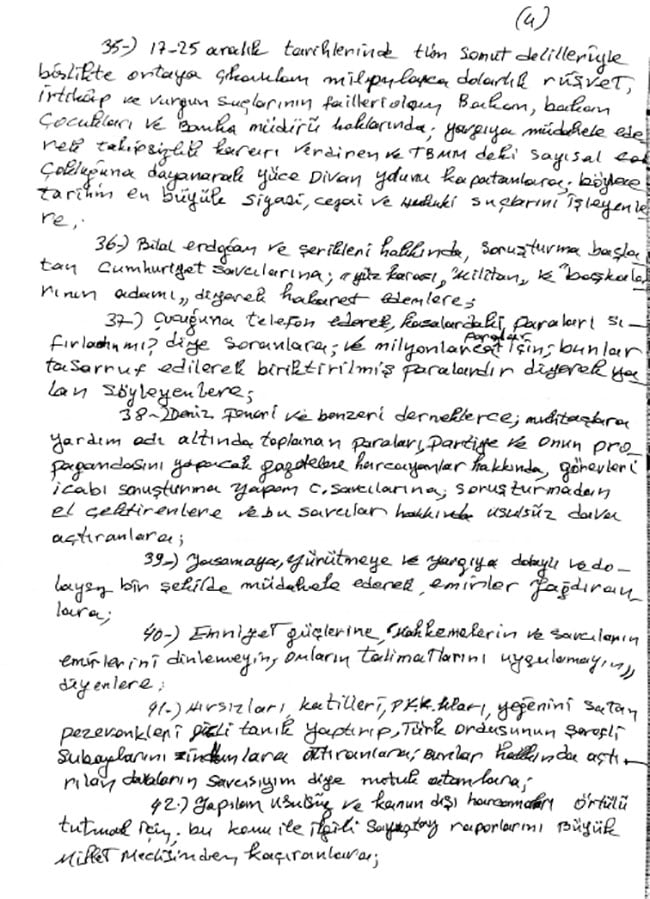 (4)
35-) 17-25 aralık tarihlerinde tüm somut delilleriyle
birlikte ortaya çıkarılan milyarlarca dolarlık rüşvet,
irtikâp ve vurgun suçlarının failleri olan Bakan, bakan
Çocukları ve Banka müdürü haklarında; yargıya müdahele ede-
rek takipsizlik kararı verdiren ve TBMM deki sayısal
Çokluğuna dayanarak yüce Divan yolunu kapatanlara; böylece
tarihin en büyük siyasi, cezai ve hukuki suçlarını işleyenle
re;
36-) Bilal erdoğan ve şerikleri hakkında, soruşturma başla
tan Cumhuriyet savcılarına; "yüz karası," "militan," ve "başkala
rının adamı," diyerek hakaret edenlere;
37-) Çocuğuna telefon ederek, kasalardaki paraları sı-
fırladın mı? diye soranlara; ve milyonlarca paralar için; bunlar
tasarruf edilerek biriktirilmiş paralardır diyerek ya
lan söyleyenlere;
38-) Deniz feneri ve benzeri derneklerce; muhtaçlara
yardım adı altında toplanan paraları, Partiye ve onun pro
pagandasını yapacak gazetelere harcayanlar hakkında, görevleri
icabı soruşturma yapan C. savcılarına; soruşturmadan
el çektirenlere ve bu savcılar hakkında usulsüz dava
açtıranlara;
39-) Yasamaya, yürütmeye ve yargıya dolaylı ve do-
laysız bir şekilde müdahele ederek, emirler yağdıran
lara;
40-) Emniyet güçlerine, "Mahkemelerin ve savcıların
emirlerini dinlemeyin, onların talimatlarını uygulamayın"
diyenlere;
41-) Hırsızları, katilleri, P.K.K.lıları, yeğenini satan
pezevenkleri gizli tanık yaptırıp, Türk ordusunun şerefli
Subaylarını zindanlara attıranlara; bunlar hakkında açtı
rılan davaların savcısıyım diye nutuk atanlara;
42-) Yapılan usulsüz ve kanun dışı harcamaları örtülü
tutmak için; bu konu ile ilgili Sayıştay raporlarını Büyük
Millet Meclisinden, kaçıranlara;